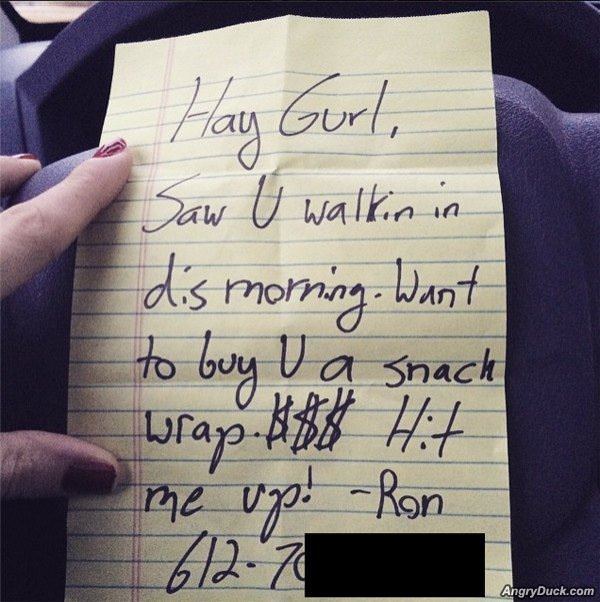 Hay Gurl,
Saw U walkin in
dis morning. Want
to buy U a snack
wrap. $$$ Hit
me up! -Ron
612-70
AngryDuck.com